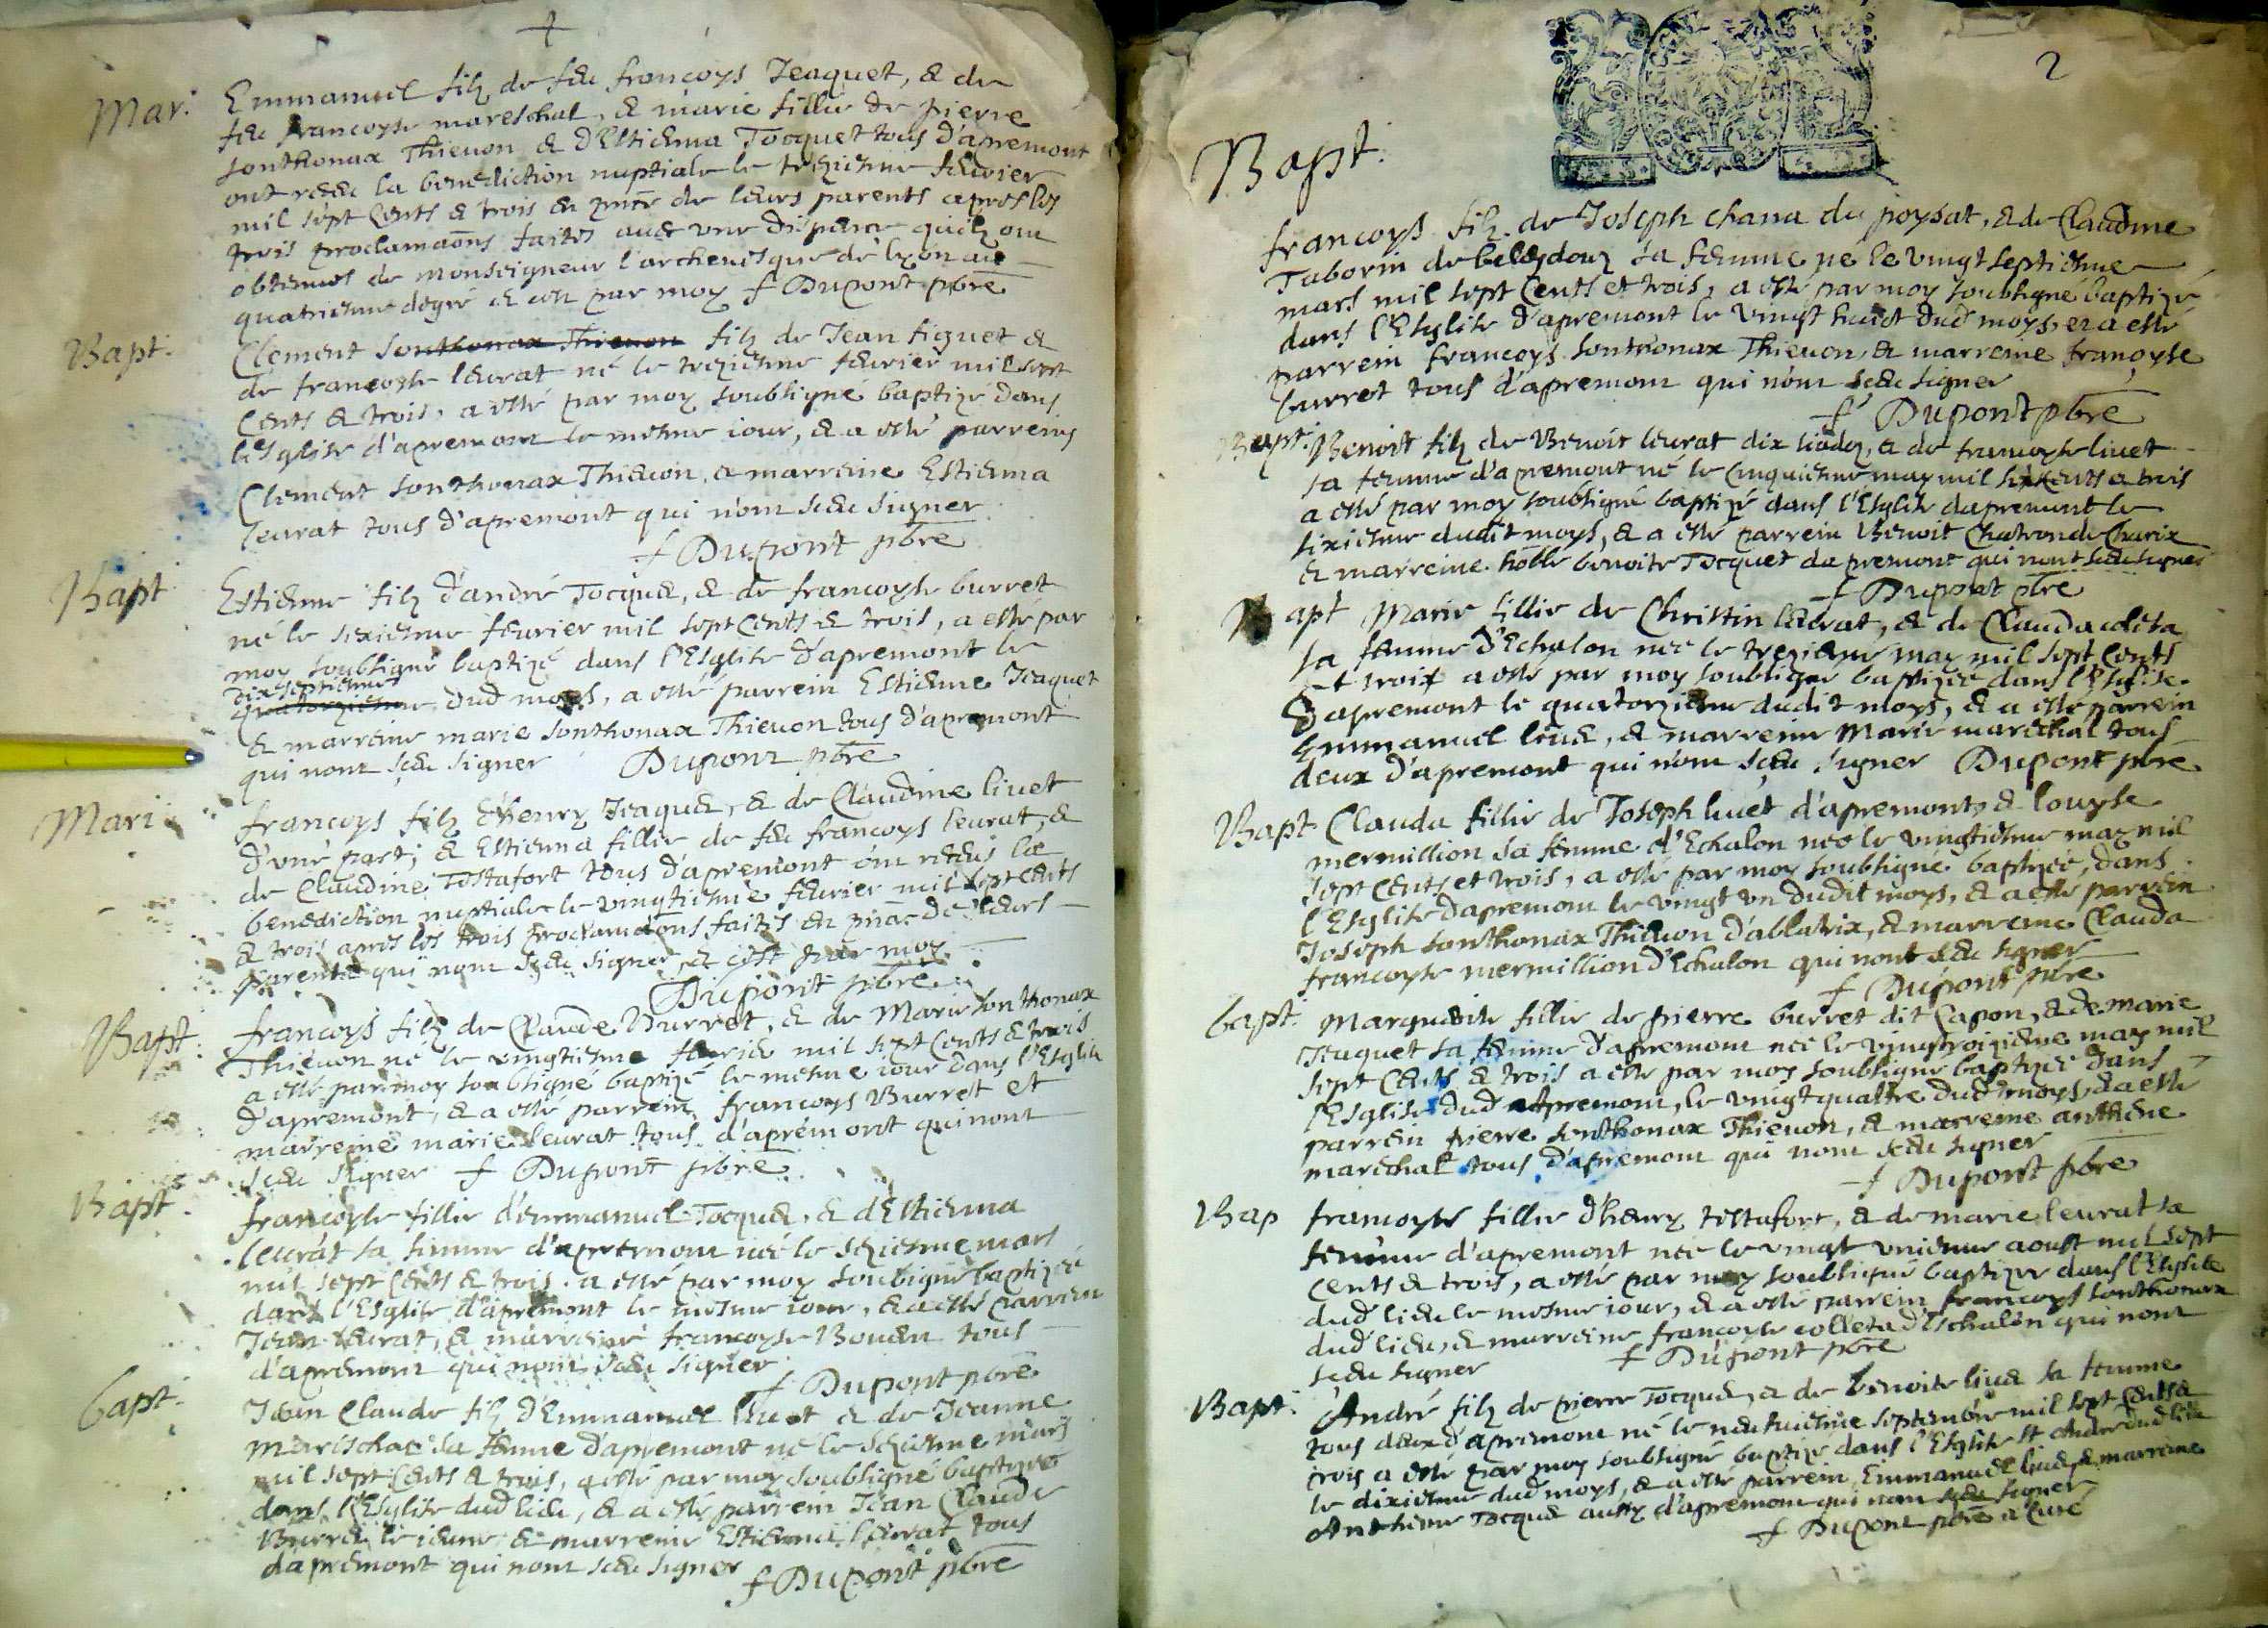 Mar.
Emmanuel filz de feu françoys Jeaquet, & de
feu francoyse mareschal, & marie fillie de pierre
sonthonax Thievon & d'Estienna Tocquet tous d'apremont
ont receu la benediction nuptiale le trezieme feuvrier
mil sept cents & trois en pnce de leurs parents apres les
trois proclamaons faites avec une dispence quilz ont
obtenues de monseigneur l'archevesque de lyon au
quatrieme degré & cest par moy f Dupont pbre
Bapt.
Clement sonthonax Thievon filz de Jean figuet &
de francoyse leurat né le trezieme feuvrier mil sept
cents & trois, a esté par moy soubsigné baptizé dans
l'Esglise d'apremont le mesme iour, & a esté parrein
Clement sonthonax Thievon, & marreine Estienna
leurat tous d'apremont qui n'ont sceu signer
f Dupont pbre
Bapt
Estienne filz d'andré Tocquet, & de francoyse burret
né le sezieme feuvrier mil sept cents & trois, a esté par
moy soubsigné baptizé dans l'Esglise d'apremont le
dixseptieme
quatorzieme dud moys, a esté parrein Estienne Jeaquet
& marreine marie sonthonax Thievon tous d'apremont
qui nont sceu signer Dupont pbre
Mari
francoys filz d'henry Jeaquet, & de Claudine livet
d'une part; & Estienna fillie de feu francoys leurat, &
de Claudine Tostafort tous d'apremont ont receus la
benediction nuptiale le vingtieme feuvrier mil sept cents
& trois apres les trois proclamaons faites en pnce de leurs
parents qui nont sceu signer & cest par moy
Dupont pbre
Bapt.
francoys filz de Claude Burret, & de Marie sonthonax
Thievon né le vingtieme feuvrier mil sept cents & trois
a esté par moy soubsigné baptizé le mesme iour dans l'Esglise
d'apremont, & a esté parrein francoys Burret et
marreine marie leurat tous d'apremont qui nont
sceu signer f Dupont pbre
Bapt.
francoyse fillie d'emmanuel Tocquet, & d'Estienna
leurat sa femme d'apremont née le sezieme mars
mil sept cents & trois. a esté par moy soubsigné baptizée
dans l'Esglise d'apremont le mesme iour, & a esté parrein
Jean leurat, & marreine francoyse Bouen tous
d'apremont qui nont sceu signer
f Dupont pbre
bapt.
Jean Claude filz d'Emmanuel livet & de Jeanne
marischal sa femme d'apremont né le sezieme mars
mil sept cents & trois, a esté par moy soubsigné baptizé
dans l'Esglise dud lieu, & a esté parrein Jean Claude
Burret le ieune & marreine Estienna leurat tous
dapremont qui nont sceu signer
f Dupont pbre
2
Bapt.
francoys filz de Joseph chana du poysat, & de Claudine
Taborin de belleydoux sa femme né le vingt septieme
mars mil sept cents et trois, a esté par moy soubsigné baptizé
dans l'Esglise d'apremont le vingt huict dud moys, et a esté
parrein francoys sonthonax Thievon, & marreine francoyse
burret tous d'apremont qui n'ont sceu signer
f Dupont pbre
Bapt.
Benoist filz de Benoit leurat dix liodoz, & de francoyse livet
sa femme d'apremont né le cinquieme may mil sept cents & trois
a esté par moy soubsigné baptizé dans l'Esglise dapremont le
sixieme dudit moys, & a esté parrein Benoit Chatron de Charix
& marreine hoble benoite Tocquet dapremont qui nont sceu signer
f Dupont pbre
Bapt
Marie fillie de Christin leurat, & de Clauda coleta
sa femme d'Echalon née le trezieme may mil sept cents
et trois a esté par moy soubsigné baptizée dans l'Esglise
d'apremont le quatorzieme dudit moys, & a esté parrein
Emmanuel livet, & marreine Marie marechal tous
deux d'apremont qui n'ont sceu signer Dupont pbre
Bapt
Clauda fillie de Joseph livet d'apremont, & louyse
mermillion sa femme d'Echalon née le vingtieme may mil
sept cents et trois, a esté par moy soubsigné baptizée, dans
l'Esglise dapremont le vingt un dudit moys, & a esté parrein
Joseph sonthonax Thievon d'ablatrix, & marreine Clauda
francoyse mermillion d'Echalon qui nont sceu signer
f Dupont pbre
bapt.
Margueite fillie de pierre burret dit Capon, & de marie
Jeaquet sa femme d'apremont née le vingtroizieme may mil
sept cents & trois a esté par moy soubsigné baptizée dans
l'Esglise dud Apremont, le vingtquattre dud moys, & a esté
parrein pierre sonthonax Thievon, & marreine anthene
marechal tous d'apremont qui nont sceu signer
f Dupont pbre
Bap
francoyse fillie d'henry tostafort, & de marie leurat sa
femme d'apremont née le vingt unieme aoust mil sept
cents & trois, a esté par moy soubsigné baptizée dans l'Esglise
dud lieu le mesme iour, & a esté parrein francoys sonthonax
dud lieu, & marreine francoyse colleta d'Eschalon qui nont
sceu signer f Dupont pbre
Bapt.
André filz de pierre Tocquet, & de benoite livet sa femme
tous deux d'apremont né le neufvieme septembre mil sept cents &
trois a esté par moy soubsigné baptizé dans l'Esglise St André dud lieu
le dixieme dud moys, & a esté parrein Emmanuel livet, & marreine
Anthiene Tocquet aussy d'apremont qui nont sceu signer
f Dupont pbre & Curé